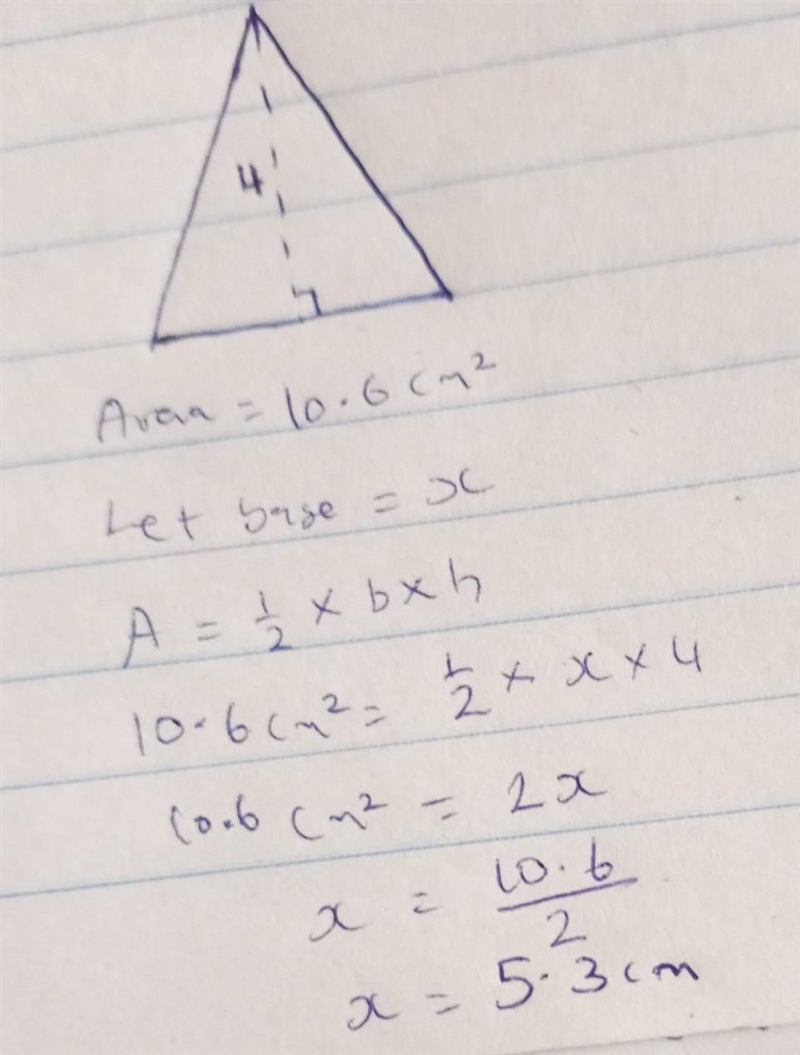 4
Area = 10.6 cm²
Let base = x
A = 1/2 × b × h
10.6 cm² = 1/2 × x × 4
10.6 cm² = 2x
x = 10.6/2
x = 5.3 cm